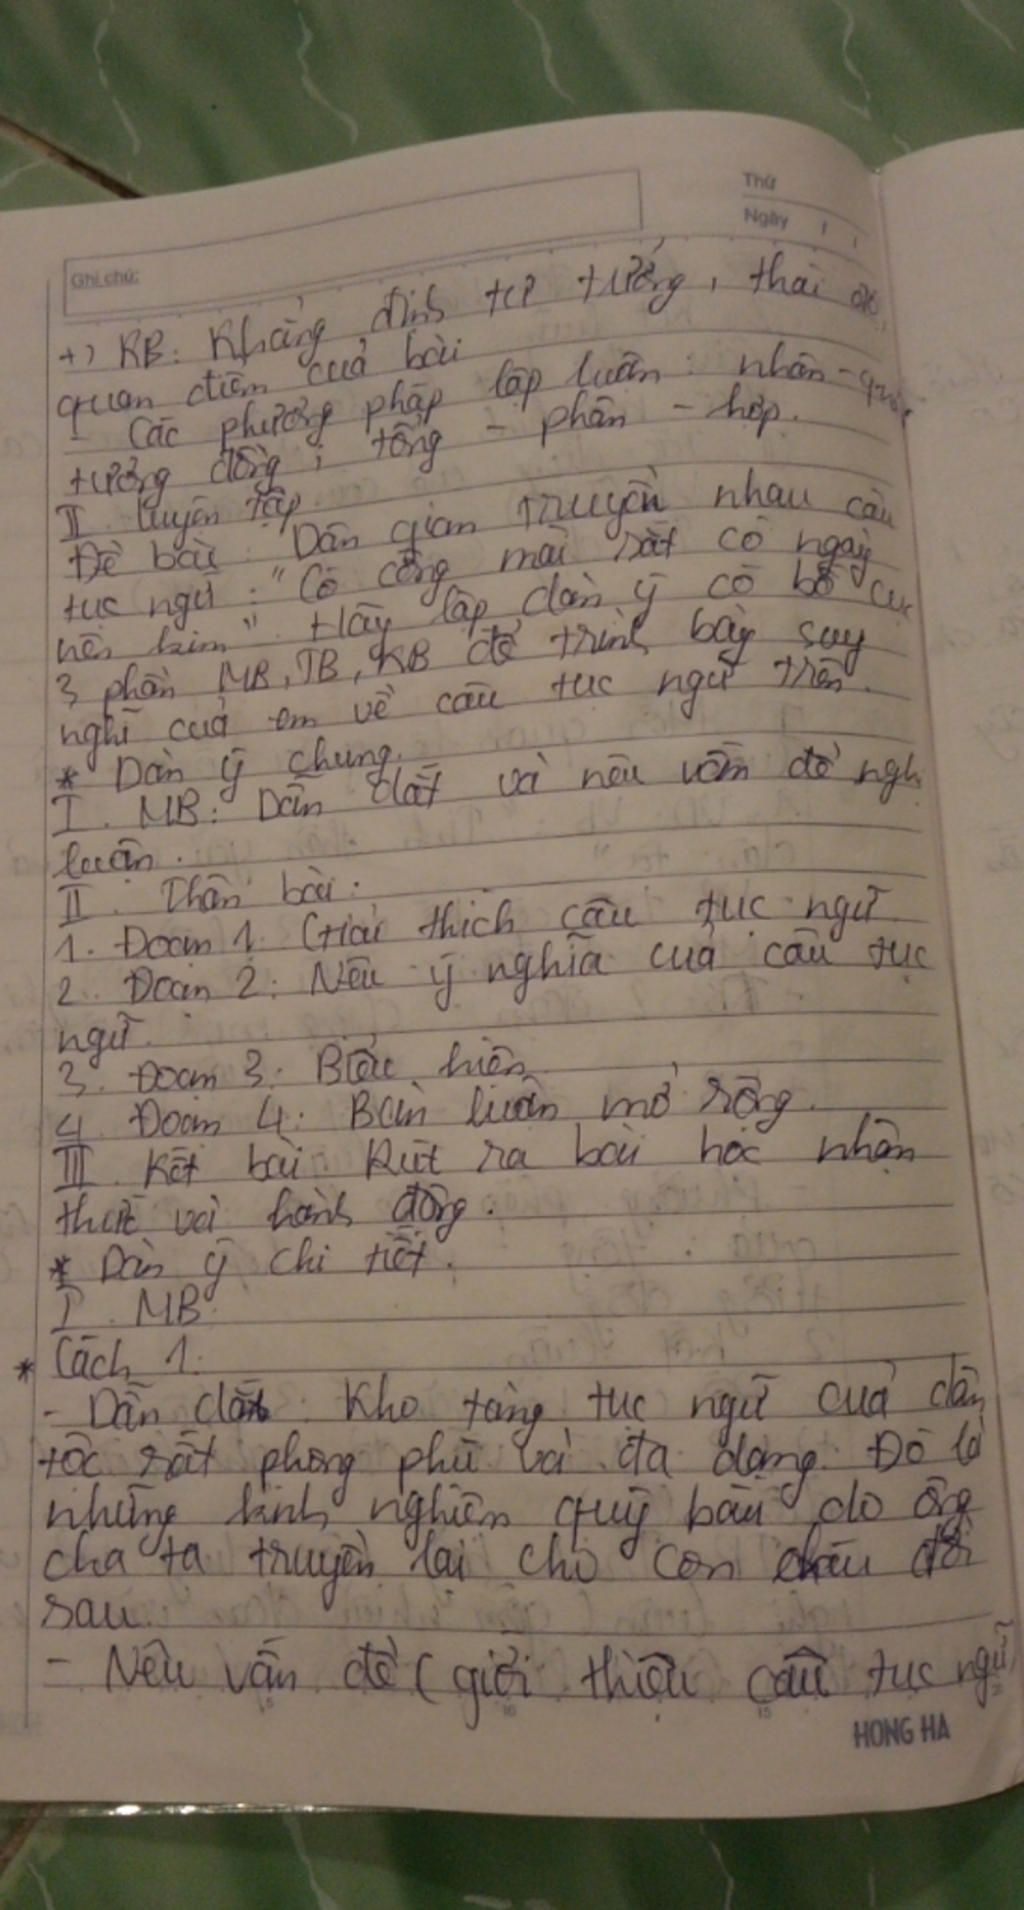 Thứ
Ngày
Ghi chú:
+) KB: Khẳng định tư tưởng, thái độ,
quan điểm của bài
- Các phương pháp lập luận: nhân - quả,
tương đồng, tổng - phân - hợp.
II. Luyện tập.
Đề bài: Dân gian truyền nhau câu
tục ngữ: "Có công mài sắt có ngày
nên kim". Hãy lập dàn ý có bố cục
3 phần MB, TB, KB để trình bày suy
nghĩ của em về câu tục ngữ trên.
* Dàn ý chung.
I. MB: Dẫn dắt và nêu vấn đề ngh
luận.
II. Thân bài:
1. Đoạn 1. Giải thích câu tục ngữ.
2. Đoạn 2: Nêu ý nghĩa của câu tục
ngữ.
3. Đoạn 3: Biểu hiện
4. Đoạn 4: Bàn luận mở rộng.
III. Kết bài: Rút ra bài học nhận
thức và hành động.
* Dàn ý chi tiết.
I. MB:
* Cách 1.
- Dẫn dắt: Kho tàng tục ngữ của dân
tộc rất phong phú và đa dạng. Đó là
những kinh nghiệm quý báu do ông
cha ta truyền lại cho con cháu đời
sau.
- Nêu vấn đề (giới thiệu câu tục ngữ
HONG HA